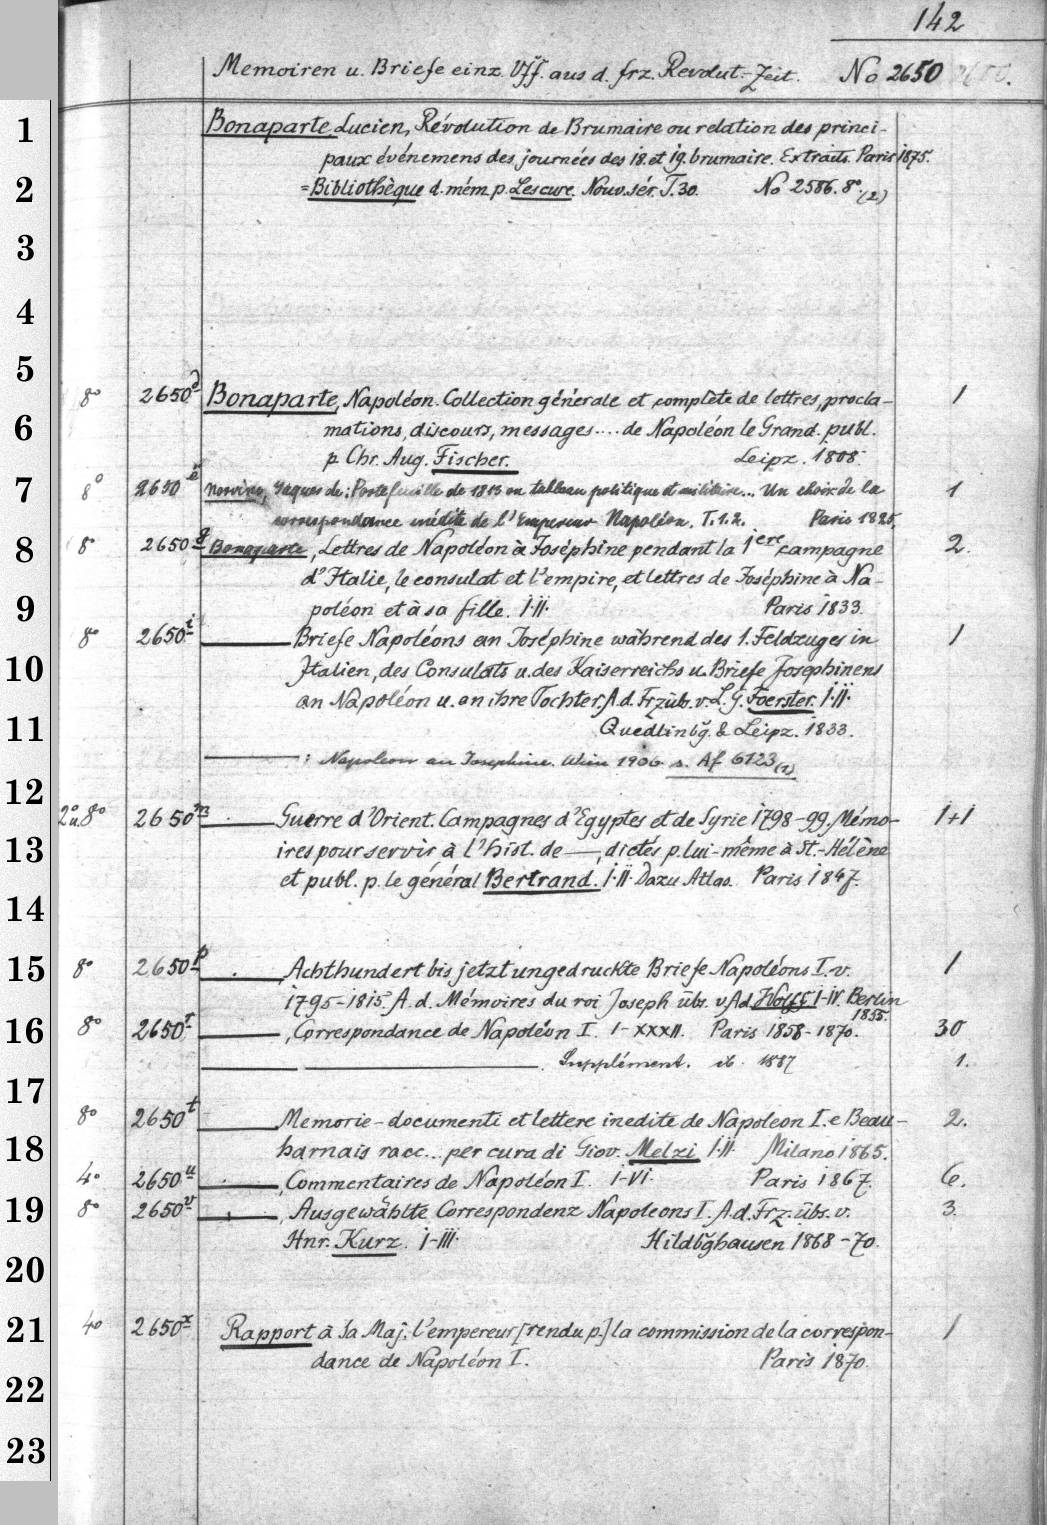 142
Memoiren u. Briefe einz. Vff. aus d. frz. Revolut.-Zeit. No 2650
1 Bonaparte Lucien, Révolution de Brumaire ou relation des princi-
paux événemens des journées des 18. et 19. brumaire. Extraits. Paris 1875.
2 = Bibliothèque d. mém. p. Lescure. Nouv. sér. T. 30. No 2586. 8º (2)
3
4
5
8º 2650d Bonaparte, Napoléon. Collection générale et complète de lettres, procla- 1
6 mations, discours, messages.... de Napoléon le Grand. publ.
p. Chr. Aug. Fischer. Leipz. 1808.
7 8º 2650e Norvins, Jaques de: Portefeuille de 1813 ou tableau politique et militaire... Un choix de la 1
correspondance inédite de l'Empereur Napoléon. T. 1. 2. Paris 1825.
8 8º 2650g Bonaparte, Lettres de Napoléon à Joséphine pendant la 1ère campagne 2.
d'Italie, le consulat et l'empire, et lettres de Joséphine à Na-
9 poléon et à sa fille. I. II. Paris 1833.
8º 2650i ——— Briefe Napoléons an Joséphine während des 1. Feldzuges in 1
10 Italien, des Consulats u. des Kaiserreichs u. Briefe Josephinens
an Napoléon u. an ihre Tochter. A. d. Frz. üb. v. L. G. Foerster. I. II.
11 Quedlinbg. & Leipz. 1833.
——— : Napoleon an Josephine. Wien 1906 s. Af 6123 (1)
12
2º u. 8º 2650m ——— Guerre d'Orient. Campagnes d'Egyptes et de Syrie 1798-99. Mémo- 1+1
13 ires pour servir à l'hist. de ——, dictés p. lui-même à St.-Hélène
et publ. p. le général Bertrand. I. II. Dazu Atlas. Paris 1847.
14
15 8º 2650p ———, Achthundert bis jetzt ungedruckte Briefe Napoléons I. v. 1
1795-1815. A. d. Mémoires du roi Joseph übs. v. Ad. Wolff I-IV. Berlin
1855.
16 8º 2650r ———, Correspondance de Napoléon I. I-XXXII. Paris 1858-1870. 30
——— ———. Supplément. ib. 1887 1.
17
8º 2650t ——— Memorie-documenti et lettere inedite de Napoleon I. e Beau- 2.
18 harnais racc... per cura di Giov. Melzi I. II. Milano 1865.
4º 2650u ———, Commentaires de Napoléon I. I-VI. Paris 1867. 6.
19 8º 2650v ———, Ausgewählte Correspondenz Napoleons I. A. d. Frz. übs. v. 3.
Hnr. Kurz. I-III. Hildbghausen 1868-70.
20
21 4º 2650x Rapport à Sa Maj. l'empereur [rendu p.] la commission de la correspon- 1
dance de Napoléon I. Paris 1870.
22
23